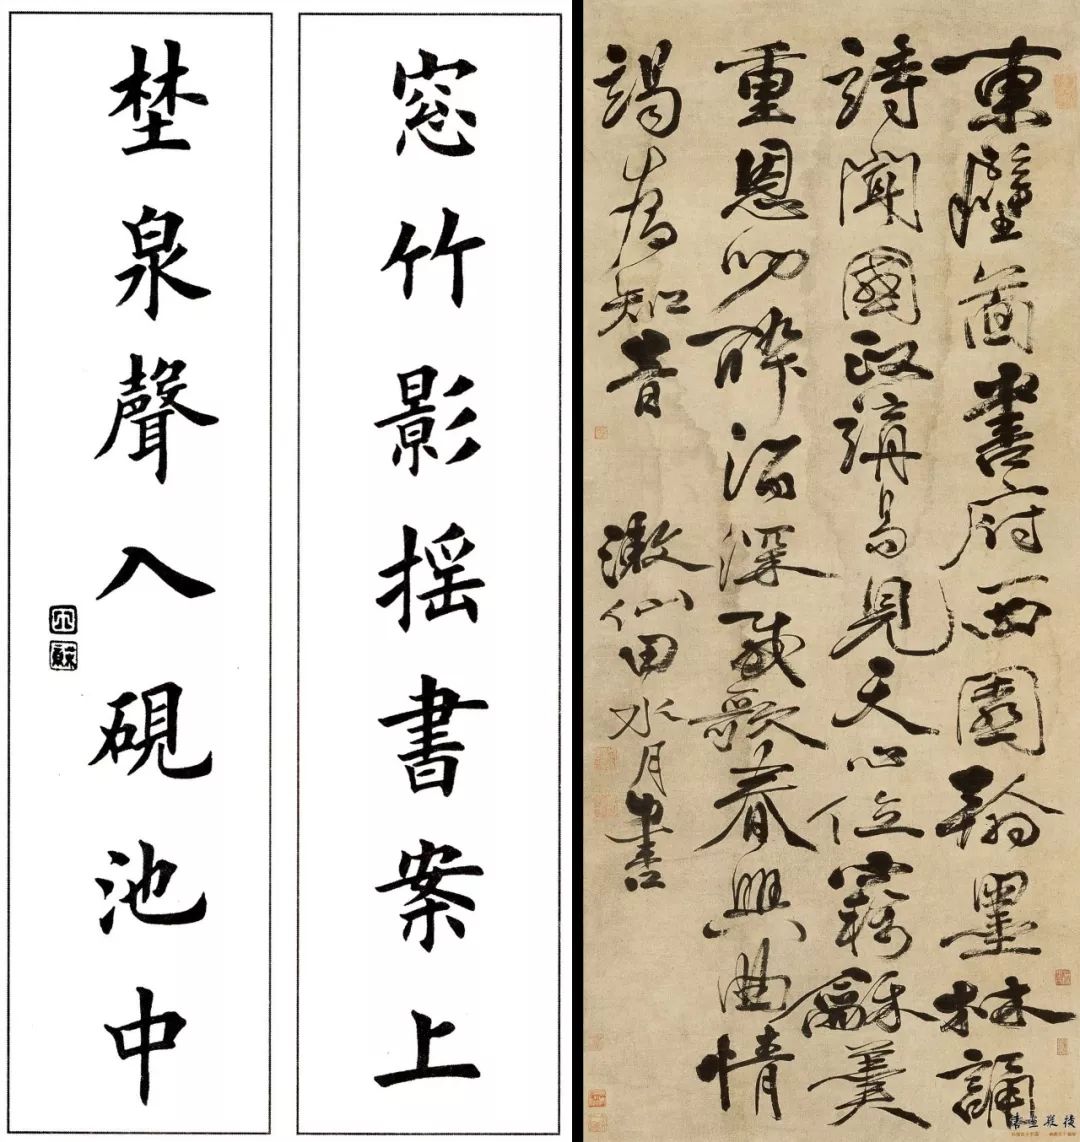 窓竹影摇書案上
埜泉聲入硯池中
東壁圖書府西園翰墨林誦
詩聞國政講易見天心位竊龢羹
重恩叨醉酒深載歌春興曲情
竭為知音
漱仙田水月書